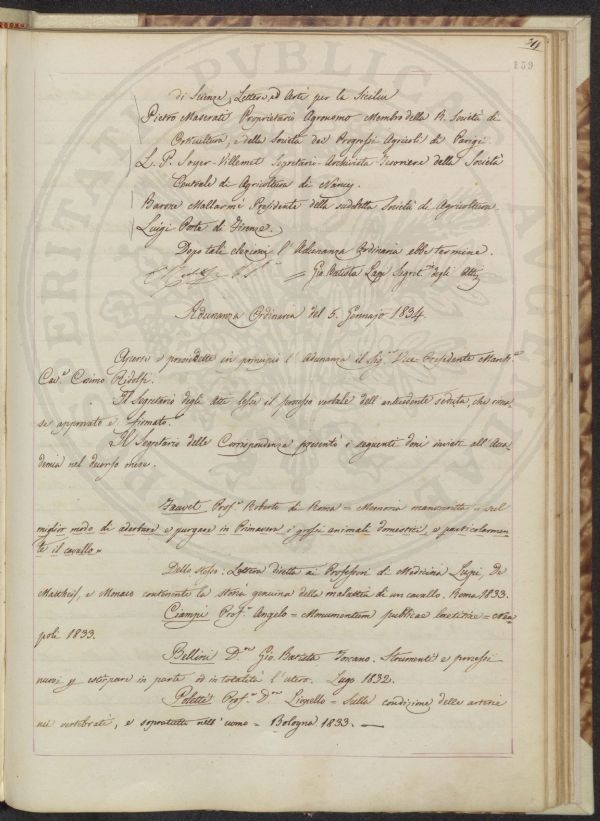 39
159
di Scienze, Lettere, ed Arti per la Sicilia
Pietro Maserati Proprietario Agronomo Membro della R. Società di
Orticultura, e della Società dei Progressi Agricoli di Parigi.
L. P. Soyer-Villemet Segretario Archivista Tesoriere della Società
Centrale di Agricoltura di Nancy.
Barone Mallarmé Presidente della suddetta Società di Agricoltura
Luigi Porte di Firenze.
Dopo tali elezioni l'Adunanza Ordinaria ebbe termine.
Gio. Batista Lapi Segret.º degli Atti
Adunanza Ordinaria del 5. Gennajo 1834.
Aperse e presiedette in principio l'adunanza il Sig.re Vice Presidente March.se
Cav.e Cosimo Ridolfi.
Il Segretario degli Atti lesse il processo verbale dell'antecedente seduta, che rima-
se approvato e firmato.
Il Segretario delle Corrispondenze presentò i seguenti doni inviati all'Acca-
demia nel decorso mese.
Fauvet Prof.e Roberto di Roma = Memoria manoscritta " sul
miglior modo di adertare e purgare in Primavera i grossi animali domestici, e particolarmen-
te il cavallo "
Dello stesso. Lettera diretta ai Professori di Medicina Luigi, De
Mattheis, e Monaco contenente la storia genuina della malattia di un cavallo. Roma, 1833.
Ciampi Prof.e Angelo = Monumentum publicae laetitiae = Na-
poli 1833.
Bellini D.re Gio. Batista Toscano. Strumenti e processi
nuovi p estirpare in parte od in totalità l'utero. Lugo 1832.
Poletti Prof.e D.re Lionello = Sulla condizione delle arterie
nei vertebrati, e sopratutto nell'uomo = Bologna 1833. —